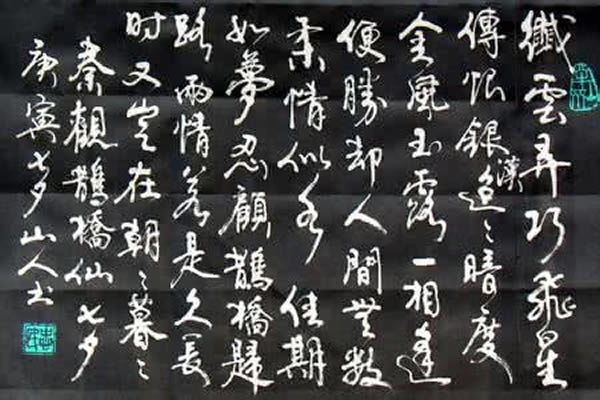 纖雲弄巧飛星
傳恨銀漢迢〻暗度
金風玉露一相逢
便勝却人間無數
柔情似水佳期
如夢忍顧鵲橋歸
路兩情若是久長
时又豈在朝〻暮〻
秦觀鵲橋仙七夕
庚寅七夕山人书